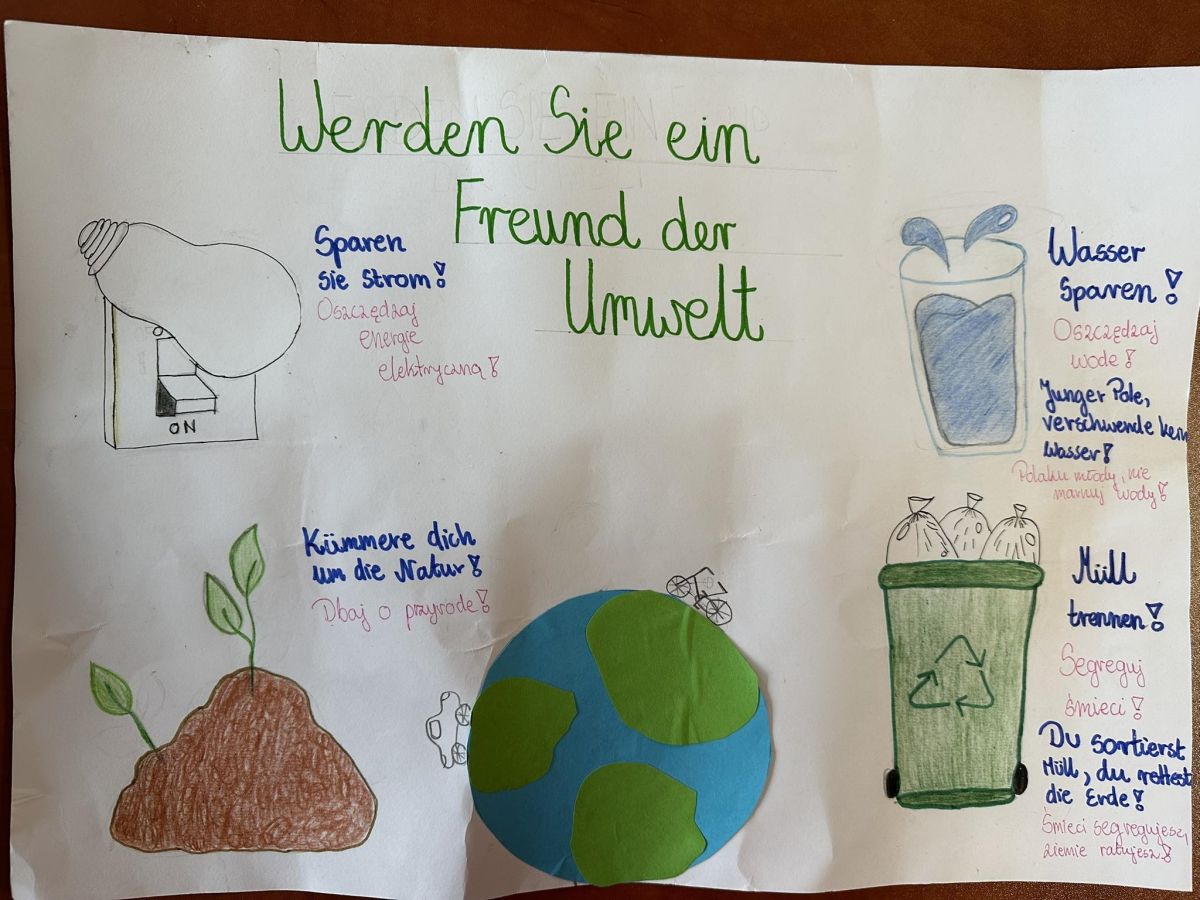 Werden Sie ein
Freund der
Umwelt
Sparen
sie Strom!
Oszczędzaj
energie
elektryczną!
ON
Wasser
sparen!
Oszczędzaj
wode!
Junger Pole,
verschwende kein
Wasser!
Polaku młody, nie
marnuj wody!
Kümmere dich
um die Natur!
Dbaj o przyrode!
Müll
trennen!
Segreguj
śmieci!
Du sortierst
Müll, du rettest
die Erde!
Śmieci segregujesz,
ziemie ratujesz!